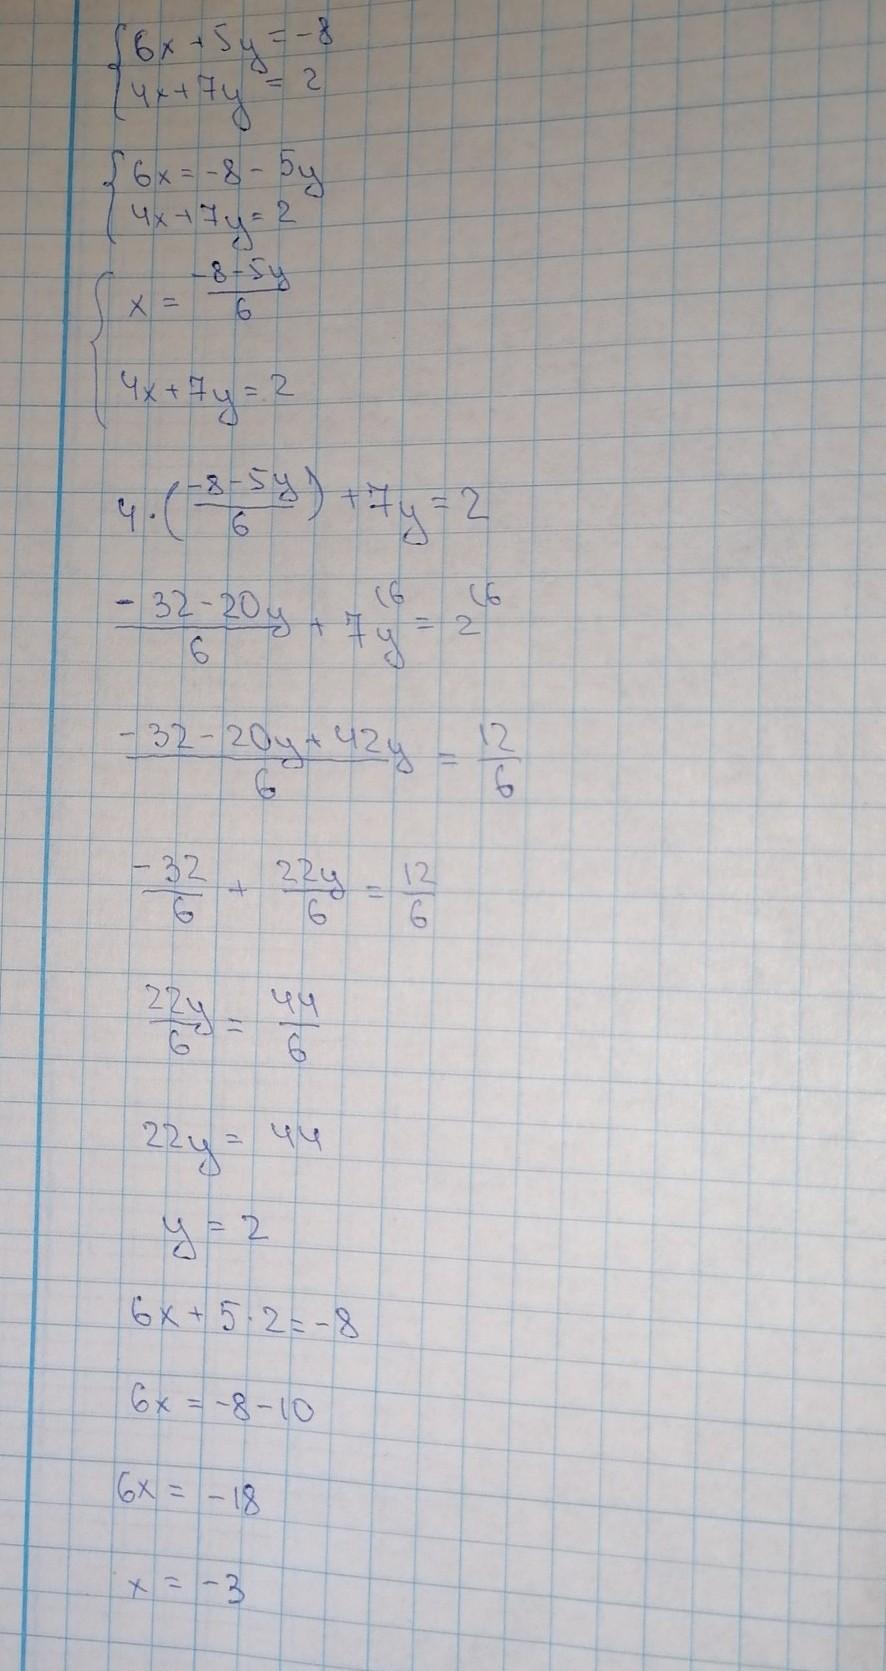 {6x + 5y = -8
{4x + 7y = 2
{6x = -8 - 5y
{4x + 7y = 2
{x = (-8 - 5y)/6
{4x + 7y = 2
4 · ((-8 - 5y)/6) + 7y = 2
(-32 - 20y)/6 + 7y (6 = 2 (6
(-32 - 20y + 42y)/6 = 12/6
-32/6 + 22y/6 = 12/6
22y/6 = 44/6
22y = 44
y = 2
6x + 5 · 2 = -8
6x = -8 - 10
6x = -18
x = -3